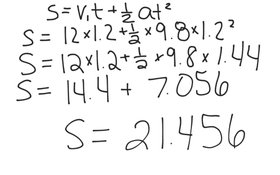 S = v₁t + ½ at²
S = 12×1.2 + ½ ×9.8×1.2²
S = 12×1.2 + ½ ×9.8×1.44
S = 14.4 + 7.056
S = 21.456